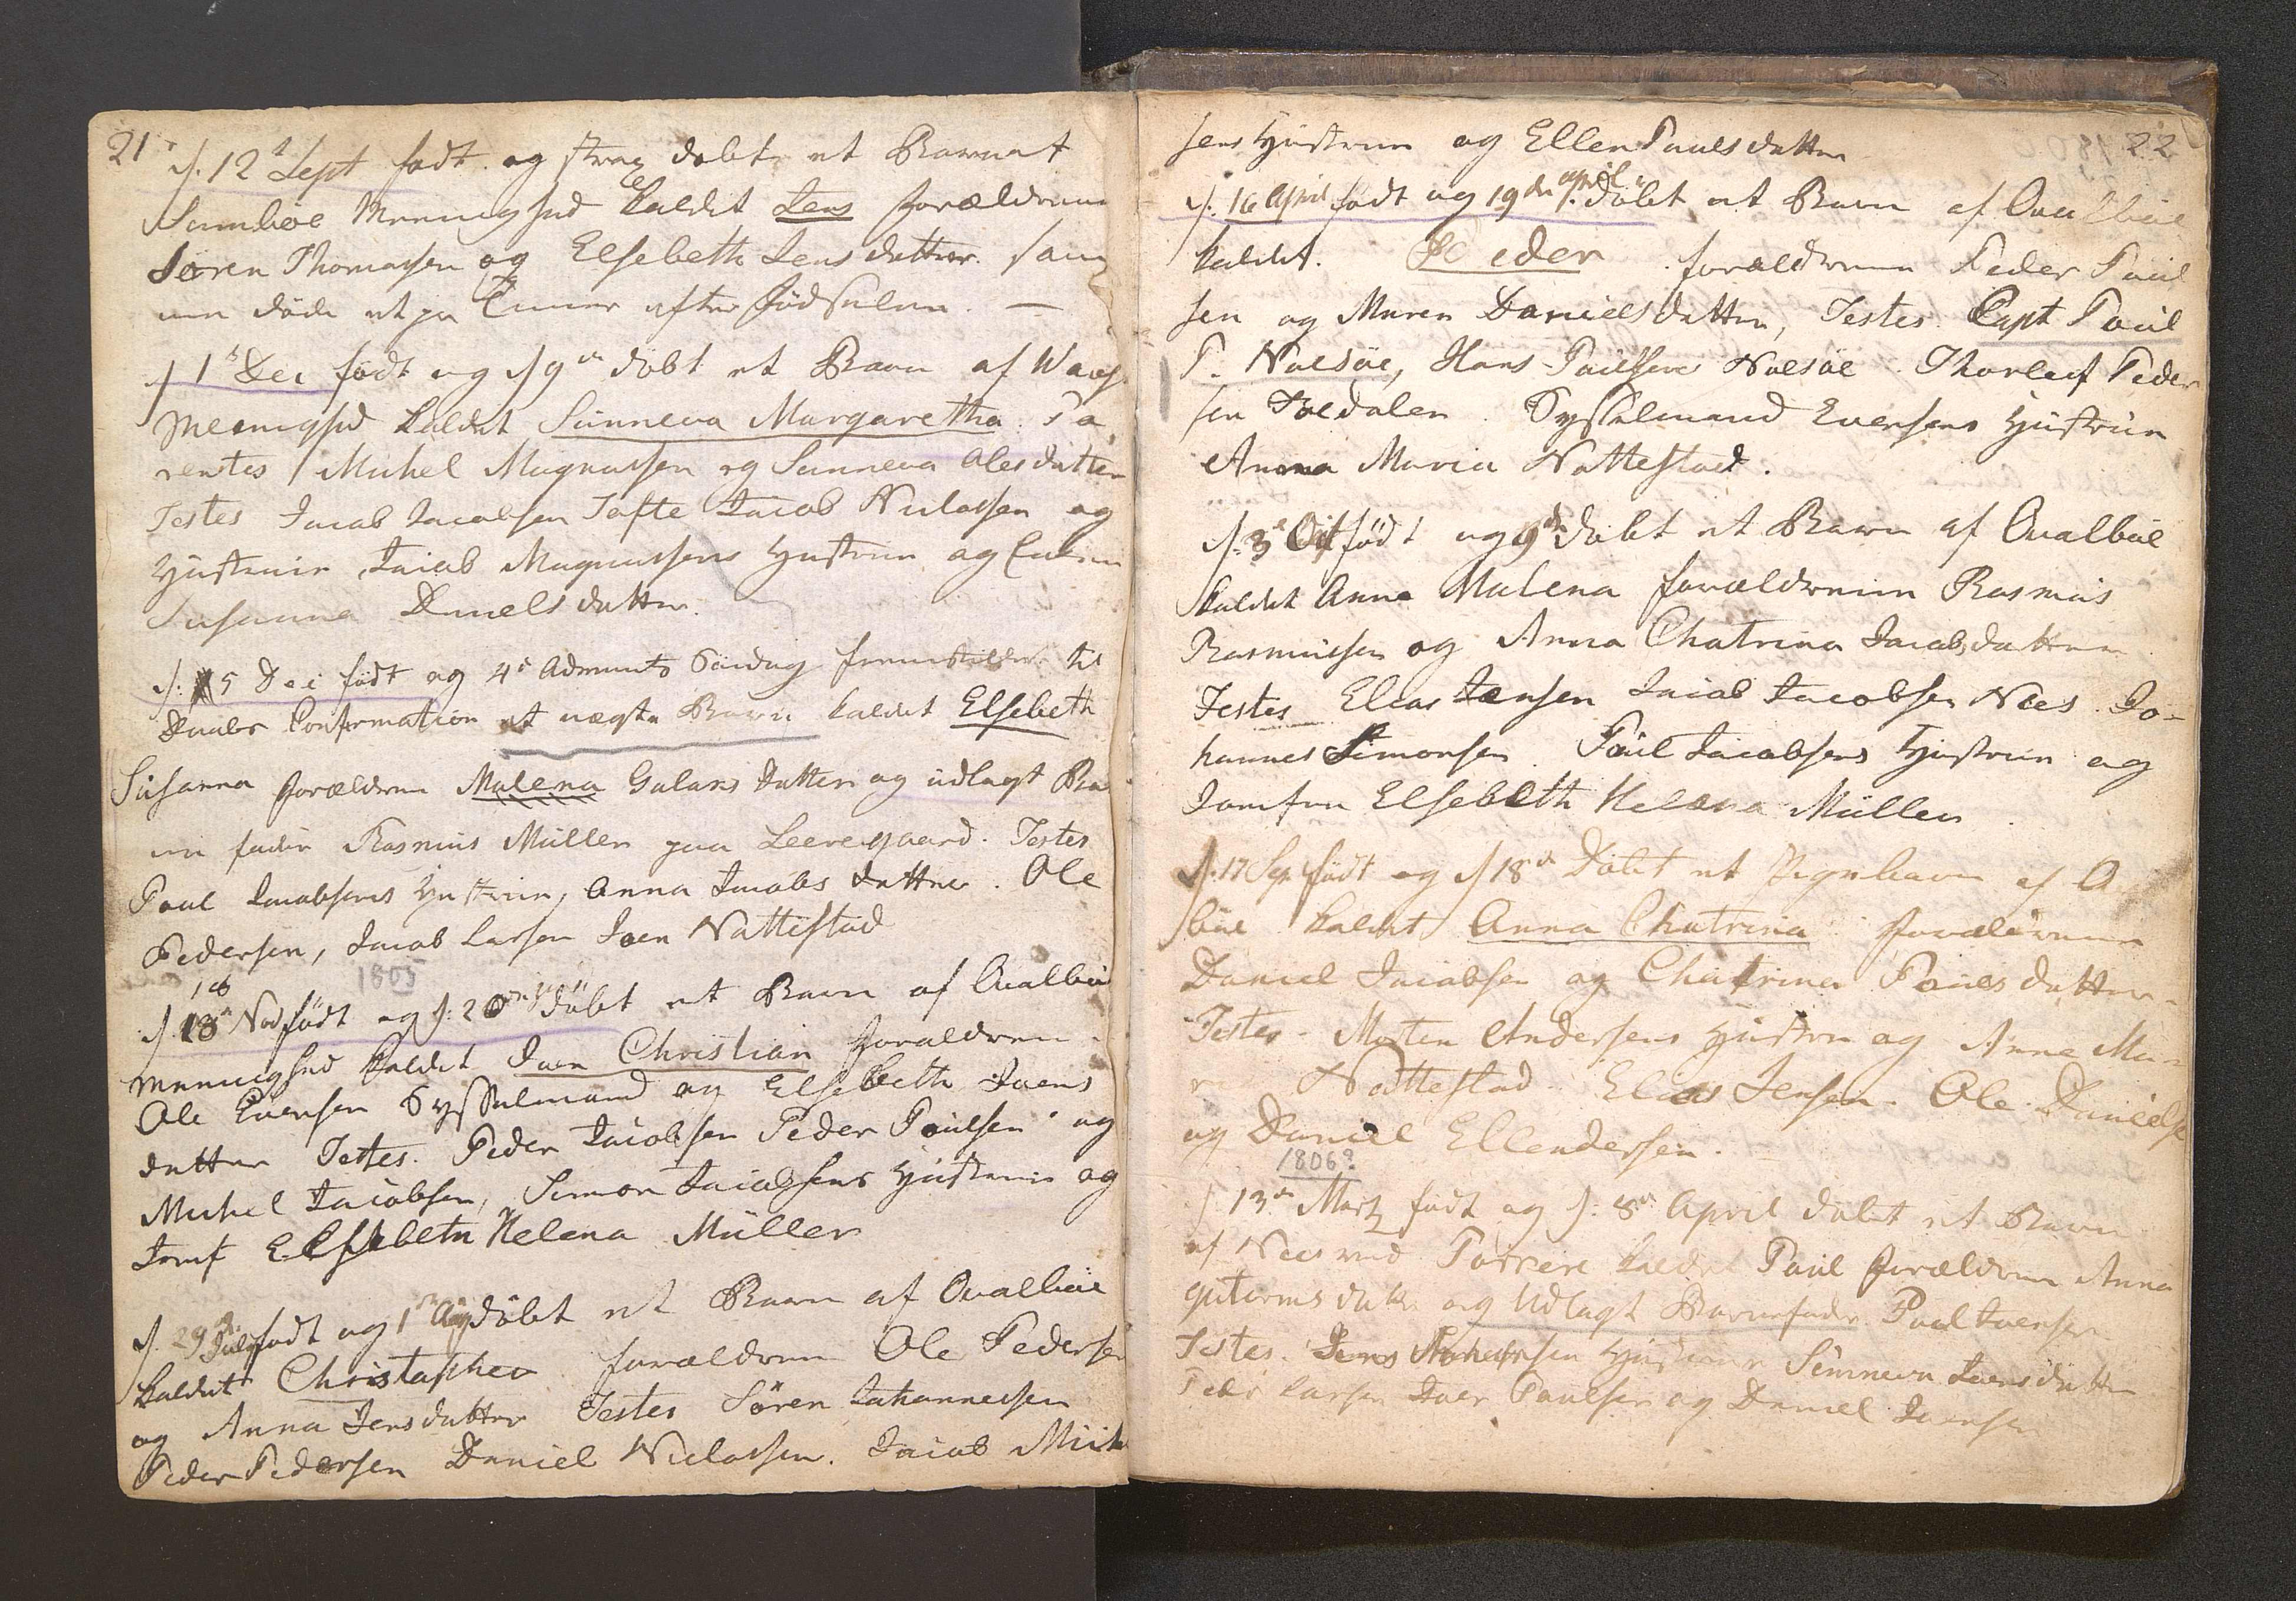 21
d. 12t Sept født og strax døbt et Barn af
Sumbøe Meenighed kaldet Jens forældrene
Søren Thomassen og Elsebeth Jens datter. sam
me døde et par Timer efter Fødselen. —
d 1t Dec født og d 9de døbt et Barn af Waags
Meenighed kaldet Sunneva Margaretha. Pa
rentes Michel Magnussen og Sunneva Oles datter
Testes Jacob Jacobsen Tofte Jacob Niclassen og
Hustrue, Jacob Magnussens Hustrue og
Susanna Daniels datter.
d: 5 Dec født og 4de Advents Søndag fremstillet til
Daabs Confirmation et uægte Barn kaldet Elsebeth
Susanna forældrene Malena datter og udlagt Bar
ne fader Rasmus Müller paa Leeregaard. Testes
Poul Jacobsens Hustrue, Anna Jacobs datter. Ole
Pedersen, Jacob Larsen Joen Nattestad
1805
18
d. 18de Nov født og d: 20de døbt et Barn af Qualbøe
Meenighed kaldet Joen Christian forældrene
Ole Evensen Sysselmand og Elsebeth Joens
datter Testes. Peder Jacobsen Peder Poulsen og
Michel Jacobsen, Simon Jacobsens Hustrue og
Jomf Elsebeth Helena Müller
d. 29 Julii født og 1ste Aug døbt et Barn af Qualbøe
kaldet Christopher forældrene Ole Pedersen
og Anna Jensdatter Testes Søren Johannesen
Peder Pedersen Daniel Niclassen. Jacob Mick
22
sens Hustrue og Ellen Pouls datter
april
d. 16 April født og 19de døbt et Barn af Qualbøe
kaldet. Peder forældrene Peder Poul
sen og Maren Daniels datter, Testes. Capt Poul
P. Nolsøe, Hans Poulsen Nolsøe. Thorleif Peder
sen. Sysselmand Evensens Hustrue
Anna Maria Nattestad.
d. 3de Oct født og 9de døbt et Barn af Qualbøe
kaldet Anna Malena forældrene Rasmus
Rasmussen og Anna Chatrina Jacobs datter
Testes Elias Jensen Jacob Jacobsen Nees. Jo-
hannes Simonsen. Poul Jacobsens Hustrue og
Jomfru Elsebeth Helena Müller
d. 17 Sep født og d 18de Døbt et Pigebarn af Q
bøe kaldet Anna Chatrina forældrene
Daniel Jacobsen og Chatrina Pouls datter-
Testes- Morten Andersens Hustrue og Anna Ma-
ria Nattestad. Elias Jensen. Ole Danielse
og Daniel Ellendersen.
1806?
d 13de Martz født og d. 8de April døbt et Barn
af Nees ved Porkere kaldet Poul forældrene Anna
Gutorms datter og Udlagt Barnefader Poul Joensen
Testes. Jens Hustrue Sunneva Joensdatter
Peder Larsen Joen Poulsen og Daniel Joensen